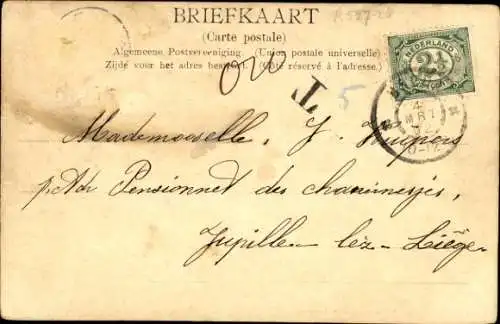 BRIEFKAART
(Carte postale)
Algemeene Postvereeniging. (Union postale universelle)
Zijde voor het adres bestemd. (Côté réservé à l'adresse.)
NEDERLAND
2½
T
5
Mademoiselle, J.
p. Adr Pensionnat des chanoinesses
Jupille-lèz-Liège-